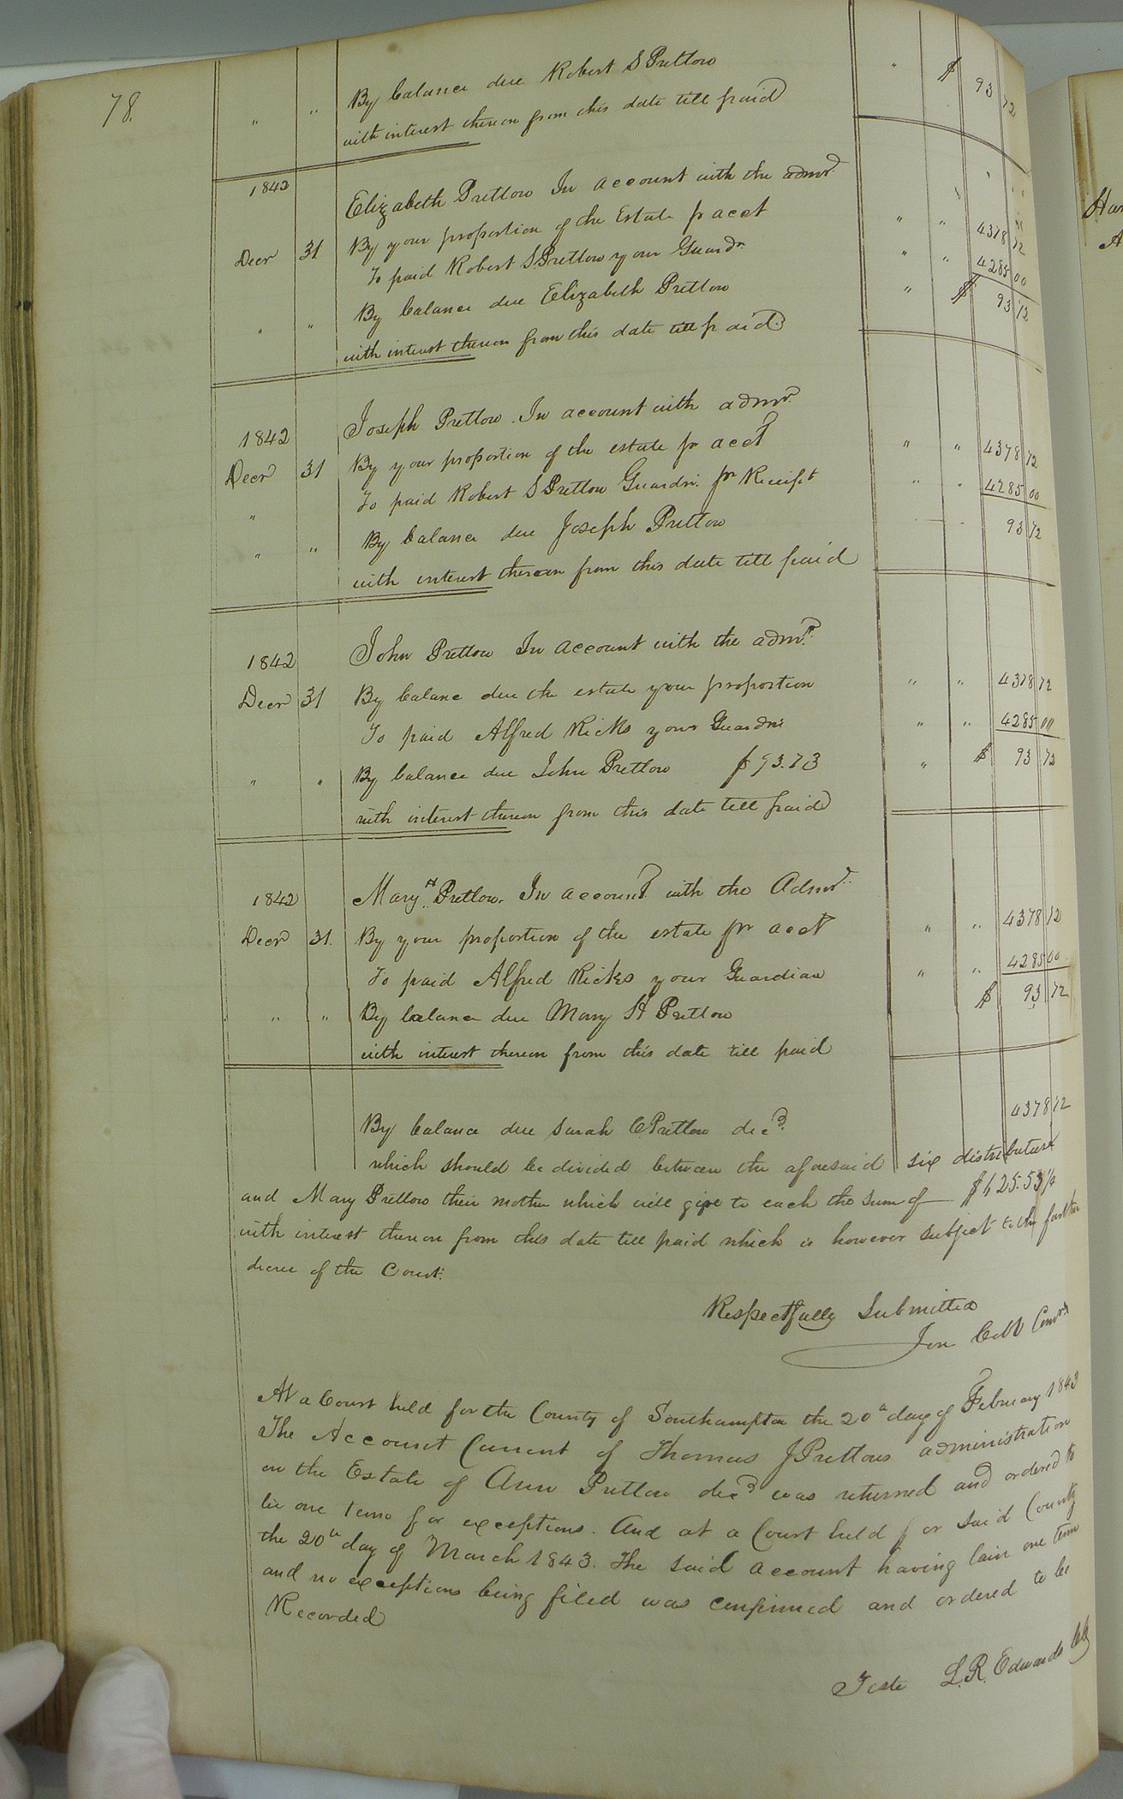 78.
" " By balance due Robert S Pretlow " $ 93 12
with interest thereon from this date till paid
1842 Elizabeth Pretlow In account with the admr
Decr 31 By your proportion of the Estate pr acct " " 4378 12
To paid Robert S Pretlow your Guardn " " 4285 00
" " By balance due Elizabeth Pretlow " $ 93 12
with interest thereon from this date till paid
1842 Joseph Pretlow. In account with admr
Decr 31 By your proportion of the estate pr acct " " 4378 12
" To paid Robert S Pretlow Guardn. pr Receipt " " 4285 00
" " By balance due Joseph Pretlow 93 12
with interest thereon from this date till paid
1842 John Pretlow In account with the admr.
Decr 31 By balanc due the estate your proportion " " 4378 12
To paid Alfred Ricks your Guardn " " 4285 00
" " By balance due John Pretlow $93.73 " $ 93 12
with interest thereon from this date till paid
1842 Mary H Pretlow. In account with the Admr
Decr 31. By your proportion of the estate pr acct " " 4378 12
To paid Alfred Ricks your Guardian " " 4285 00
" " By balance due Mary H Pretlow $ 93 12
with interest thereon from this date till paid
By balance due Sarah C Pretlow decd. 4378 12
which should be divided between the aforesaid six distributees
and Mary Pretlow their mother which will give to each the sum of
with interest thereon from this date till paid which is however subject to the further
decree of the Court.
Respectfully Submitted
Cobb Comr
At a Court held for the County of Southampton the 20th day of February 1843
The Account Current of Thomas J Pretlows administration
on the Estate of Ann Pretlow decd was returned and ordered to
lie one term for exceptions. And at a Court held for said County
the 20th day of March 1843. The said account having lain one term
and no exceptions being filed was confirmed and ordered to be
Recorded
Teste L. R. Edwards Clk